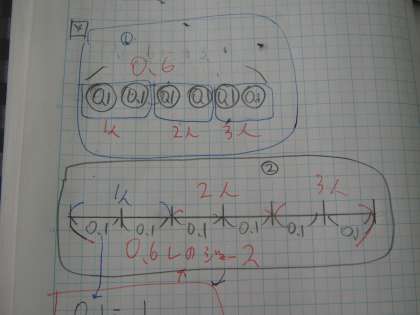 ①
0.6
0.1 0.1 0.1 0.1 0.1 0.1
1人 2人 3人
②
1人 2人 3人
0.1 0.1 0.1 0.1 0.1 0.1
0.6Lの